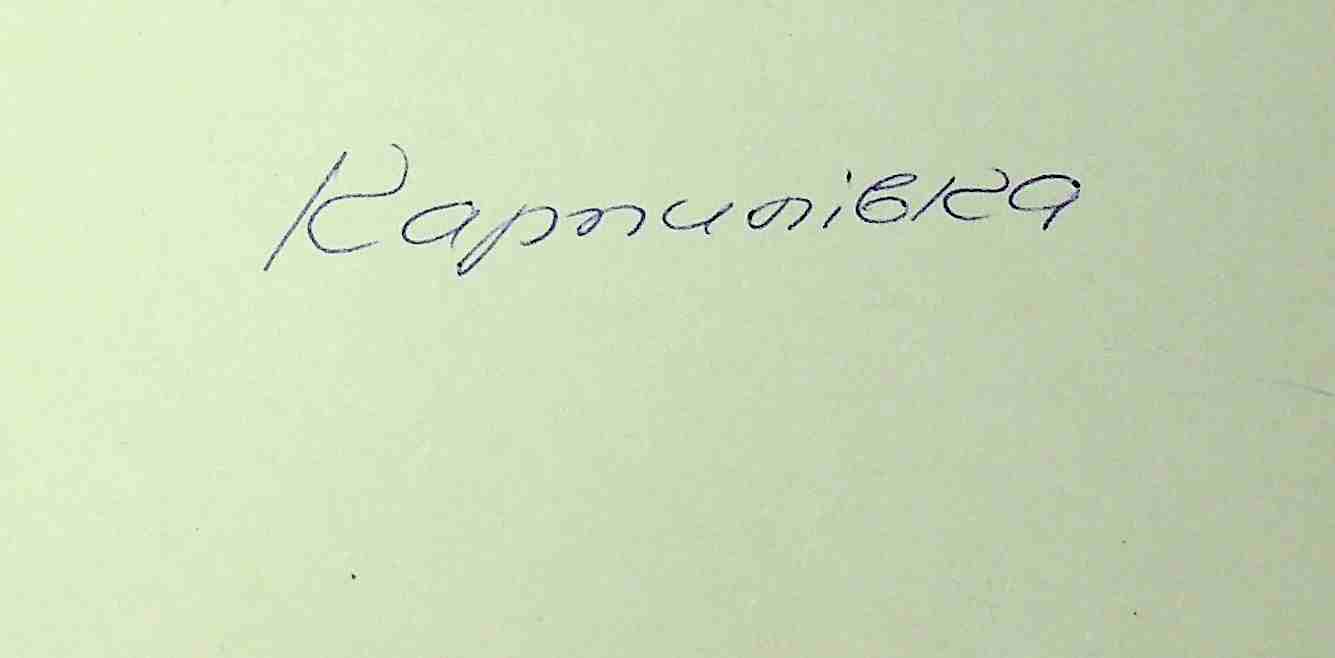 Карпилівка